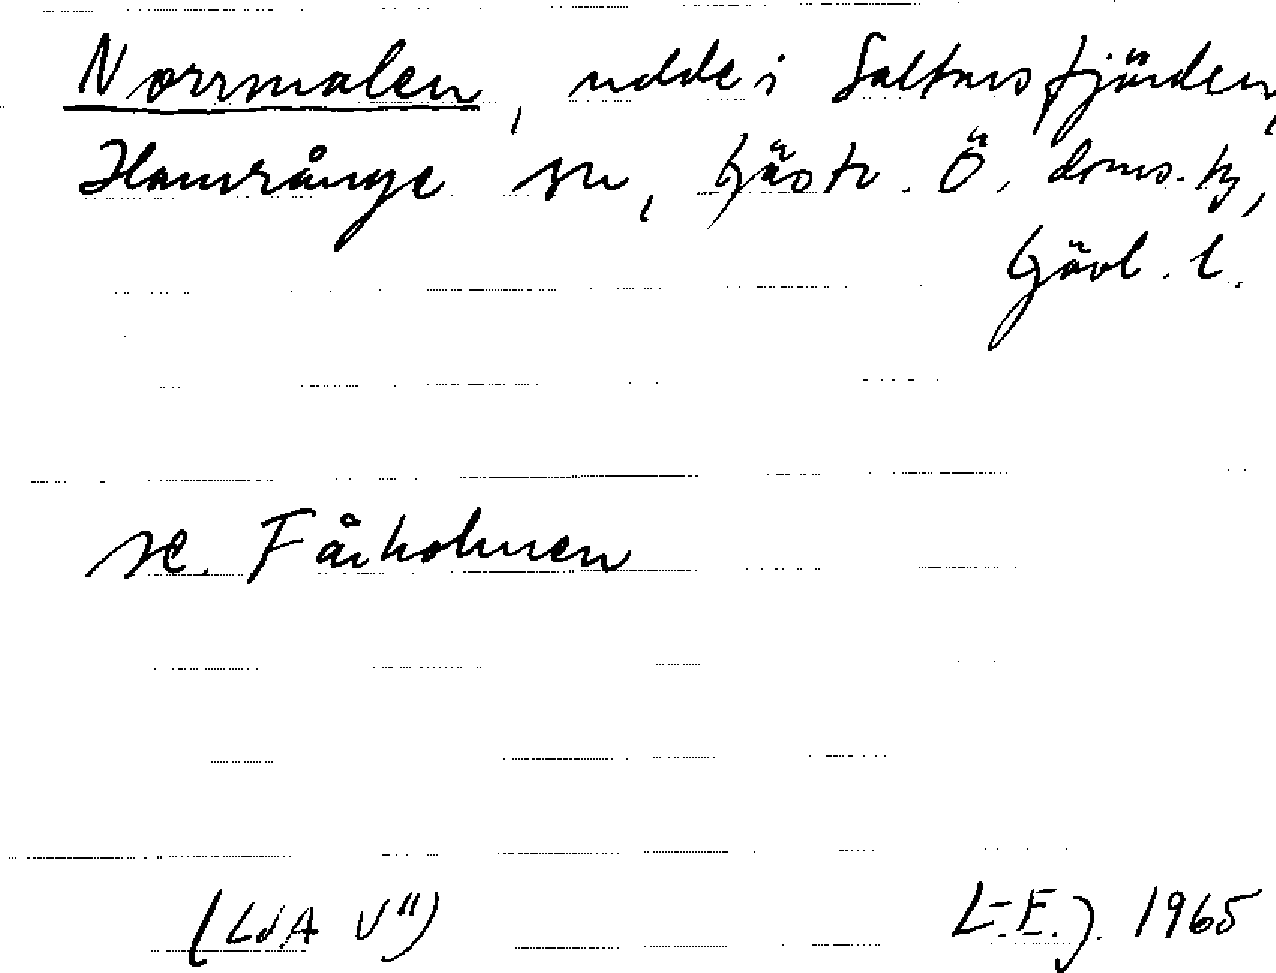 Norrmalen, udde i Saltarsfjärden,
Hamrånge sn, Gästr. Ö. doms. tg,
Gävl. l.
se. Fårholmen
(LdA V")
L-E.J. 1965